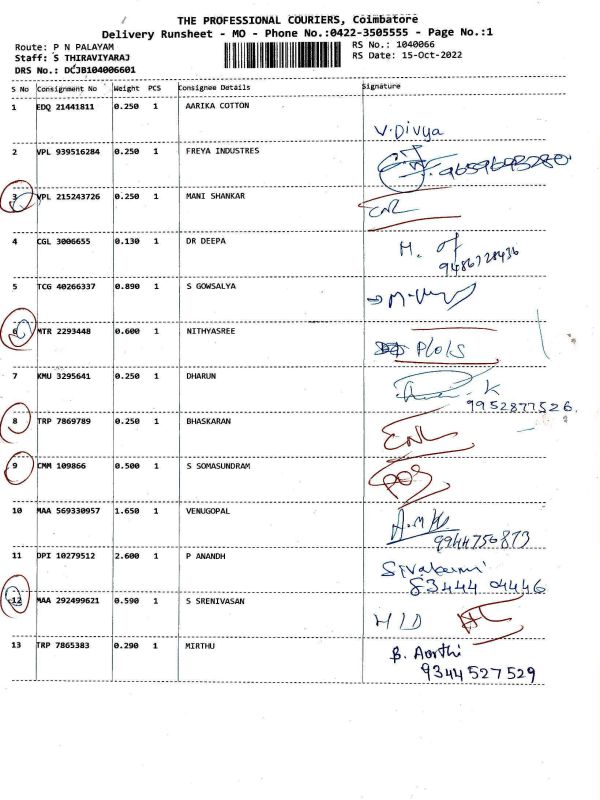 THE PROFESSIONAL COURIERS, Coimbatore
Delivery Runsheet - MO - Phone No.:0422-3505555 - Page No.:1
Route: P N PALAYAM RS No.: 1040066
Staff: S THIRAVIYARAJ RS Date: 15-Oct-2022
DRS No.: DCJB104006601
S No Consignment No Weight PCS Consignee Details Signature
1 EDQ 21441811 0.250 1 AARIKA COTTON
V.Divya
2 VPL 939516284 0.250 1 FREYA INDUSTRES
3 VPL 215243726 0.250 1 MANI SHANKAR
4 CGL 3006655 0.130 1 DR DEEPA
M.
9486728436
5 TCG 40266337 0.890 1 S GOWSALYA
6 MTR 2293448 0.600 1 NITHYASREE
7 KMU 3295641 0.250 1 DHARUN
K
9952877526.
8 TRP 7869789 0.250 1 BHASKARAN
9 CMM 109866 0.500 1 S SOMASUNDRAM
10 MAA 569330957 1.650 1 VENUGOPAL
9944756873
11 DPI 10279512 2.600 1 P ANANDH
83444 04446
12 MAA 292499621 0.590 1 S SRENIVASAN
13 TRP 7865383 0.290 1 MIRTHU
B. Aarthi
9344527529